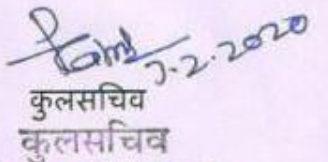 7.2.2020
कुलसचिव
कुलसचिव